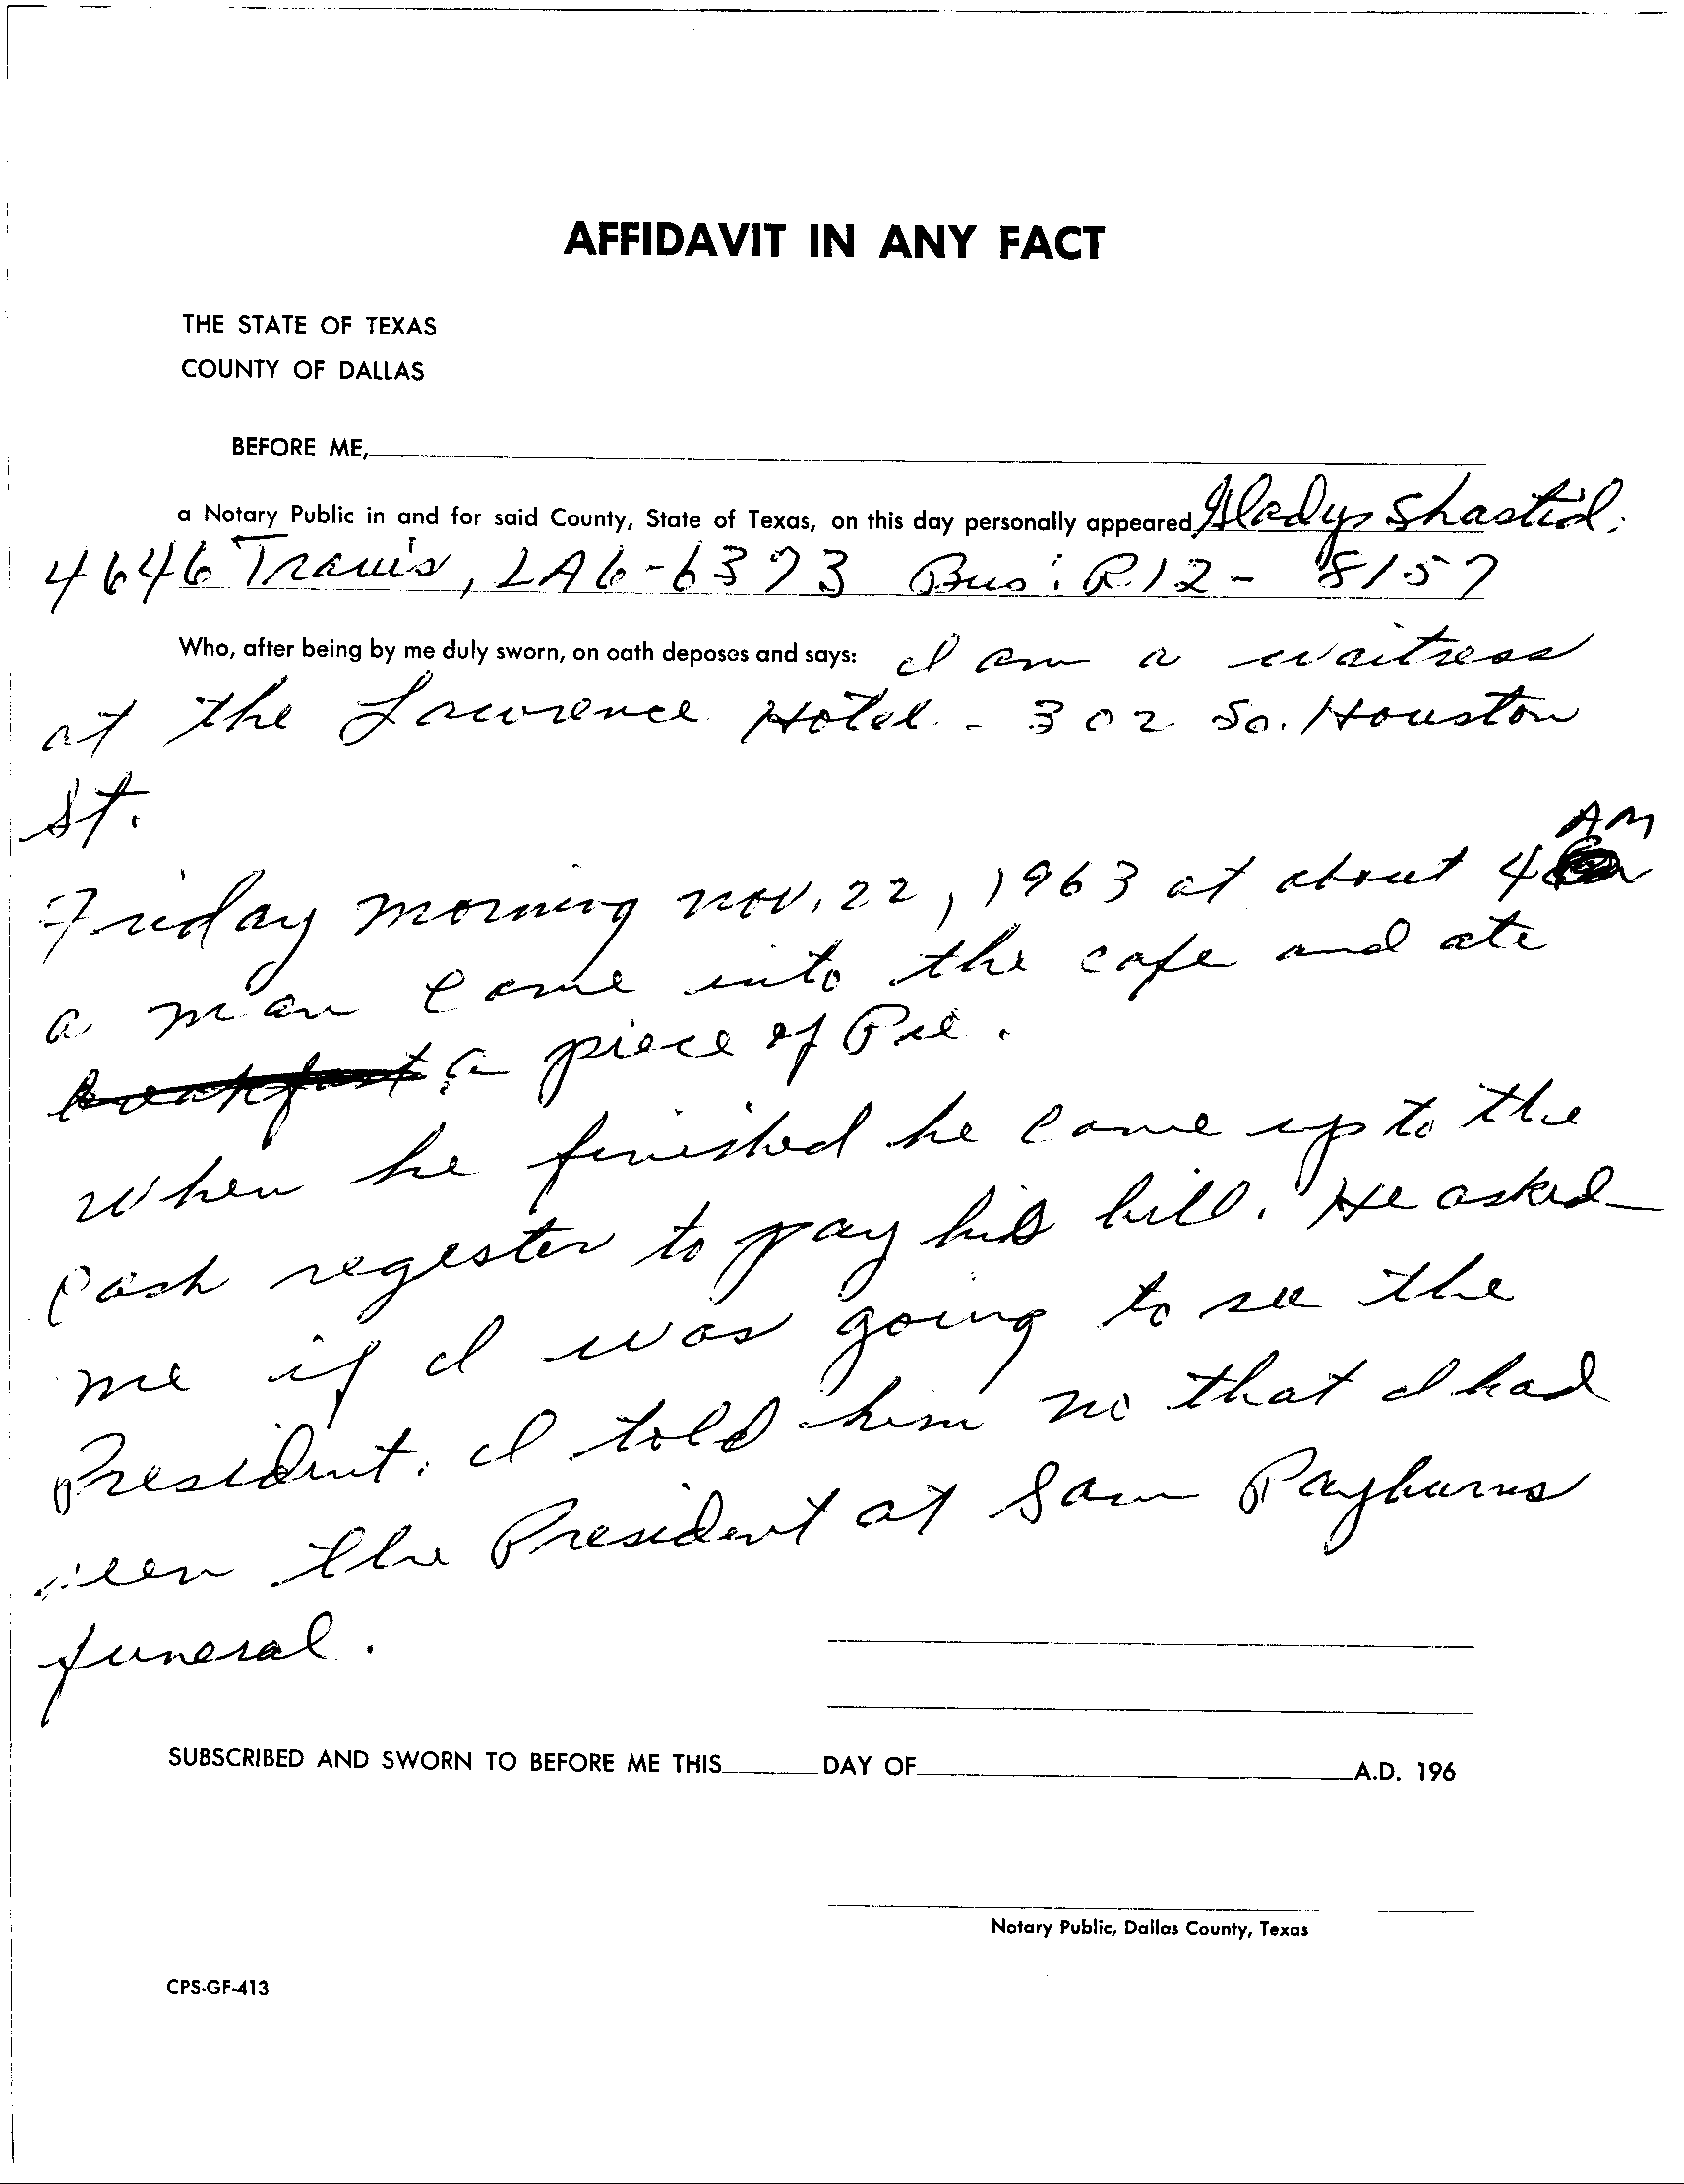 AFFIDAVIT IN ANY FACT
THE STATE OF TEXAS
COUNTY OF DALLAS
BEFORE ME,
a Notary Public in and for said County, State of Texas, on this day personally appeared Gladys Shastid.
4646 Travis, LA6-6373 Bus: RI2-8157
Who, after being by me duly sworn, on oath deposes and says: I am a waitress
at the Lawrence Hotel - 302 So. Houston
St.
AM
Friday morning Nov. 22, 1963 at about 4
a man came into the cafe and ate
breakfast a piece of Pie.
When he finished he came up to the
cash regester to pay his bill. He asked
me if I was going to see the
President. I told him no that I had
seen the President at Sam Rayburns
funeral.
SUBSCRIBED AND SWORN TO BEFORE ME THIS DAY OF A.D. 196
Notary Public, Dallas County, Texas
CPS-GF-413